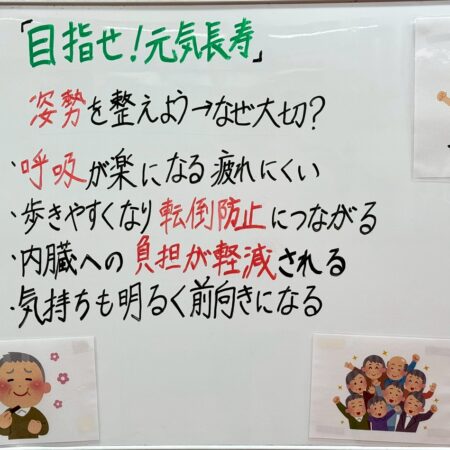 「目指せ！元気長寿」
姿勢を整えよう→なぜ大切？
・呼吸が楽になる疲れにくい
・歩きやすくなり転倒防止につながる
・内臓への負担が軽減される
・気持ちも明るく前向きになる